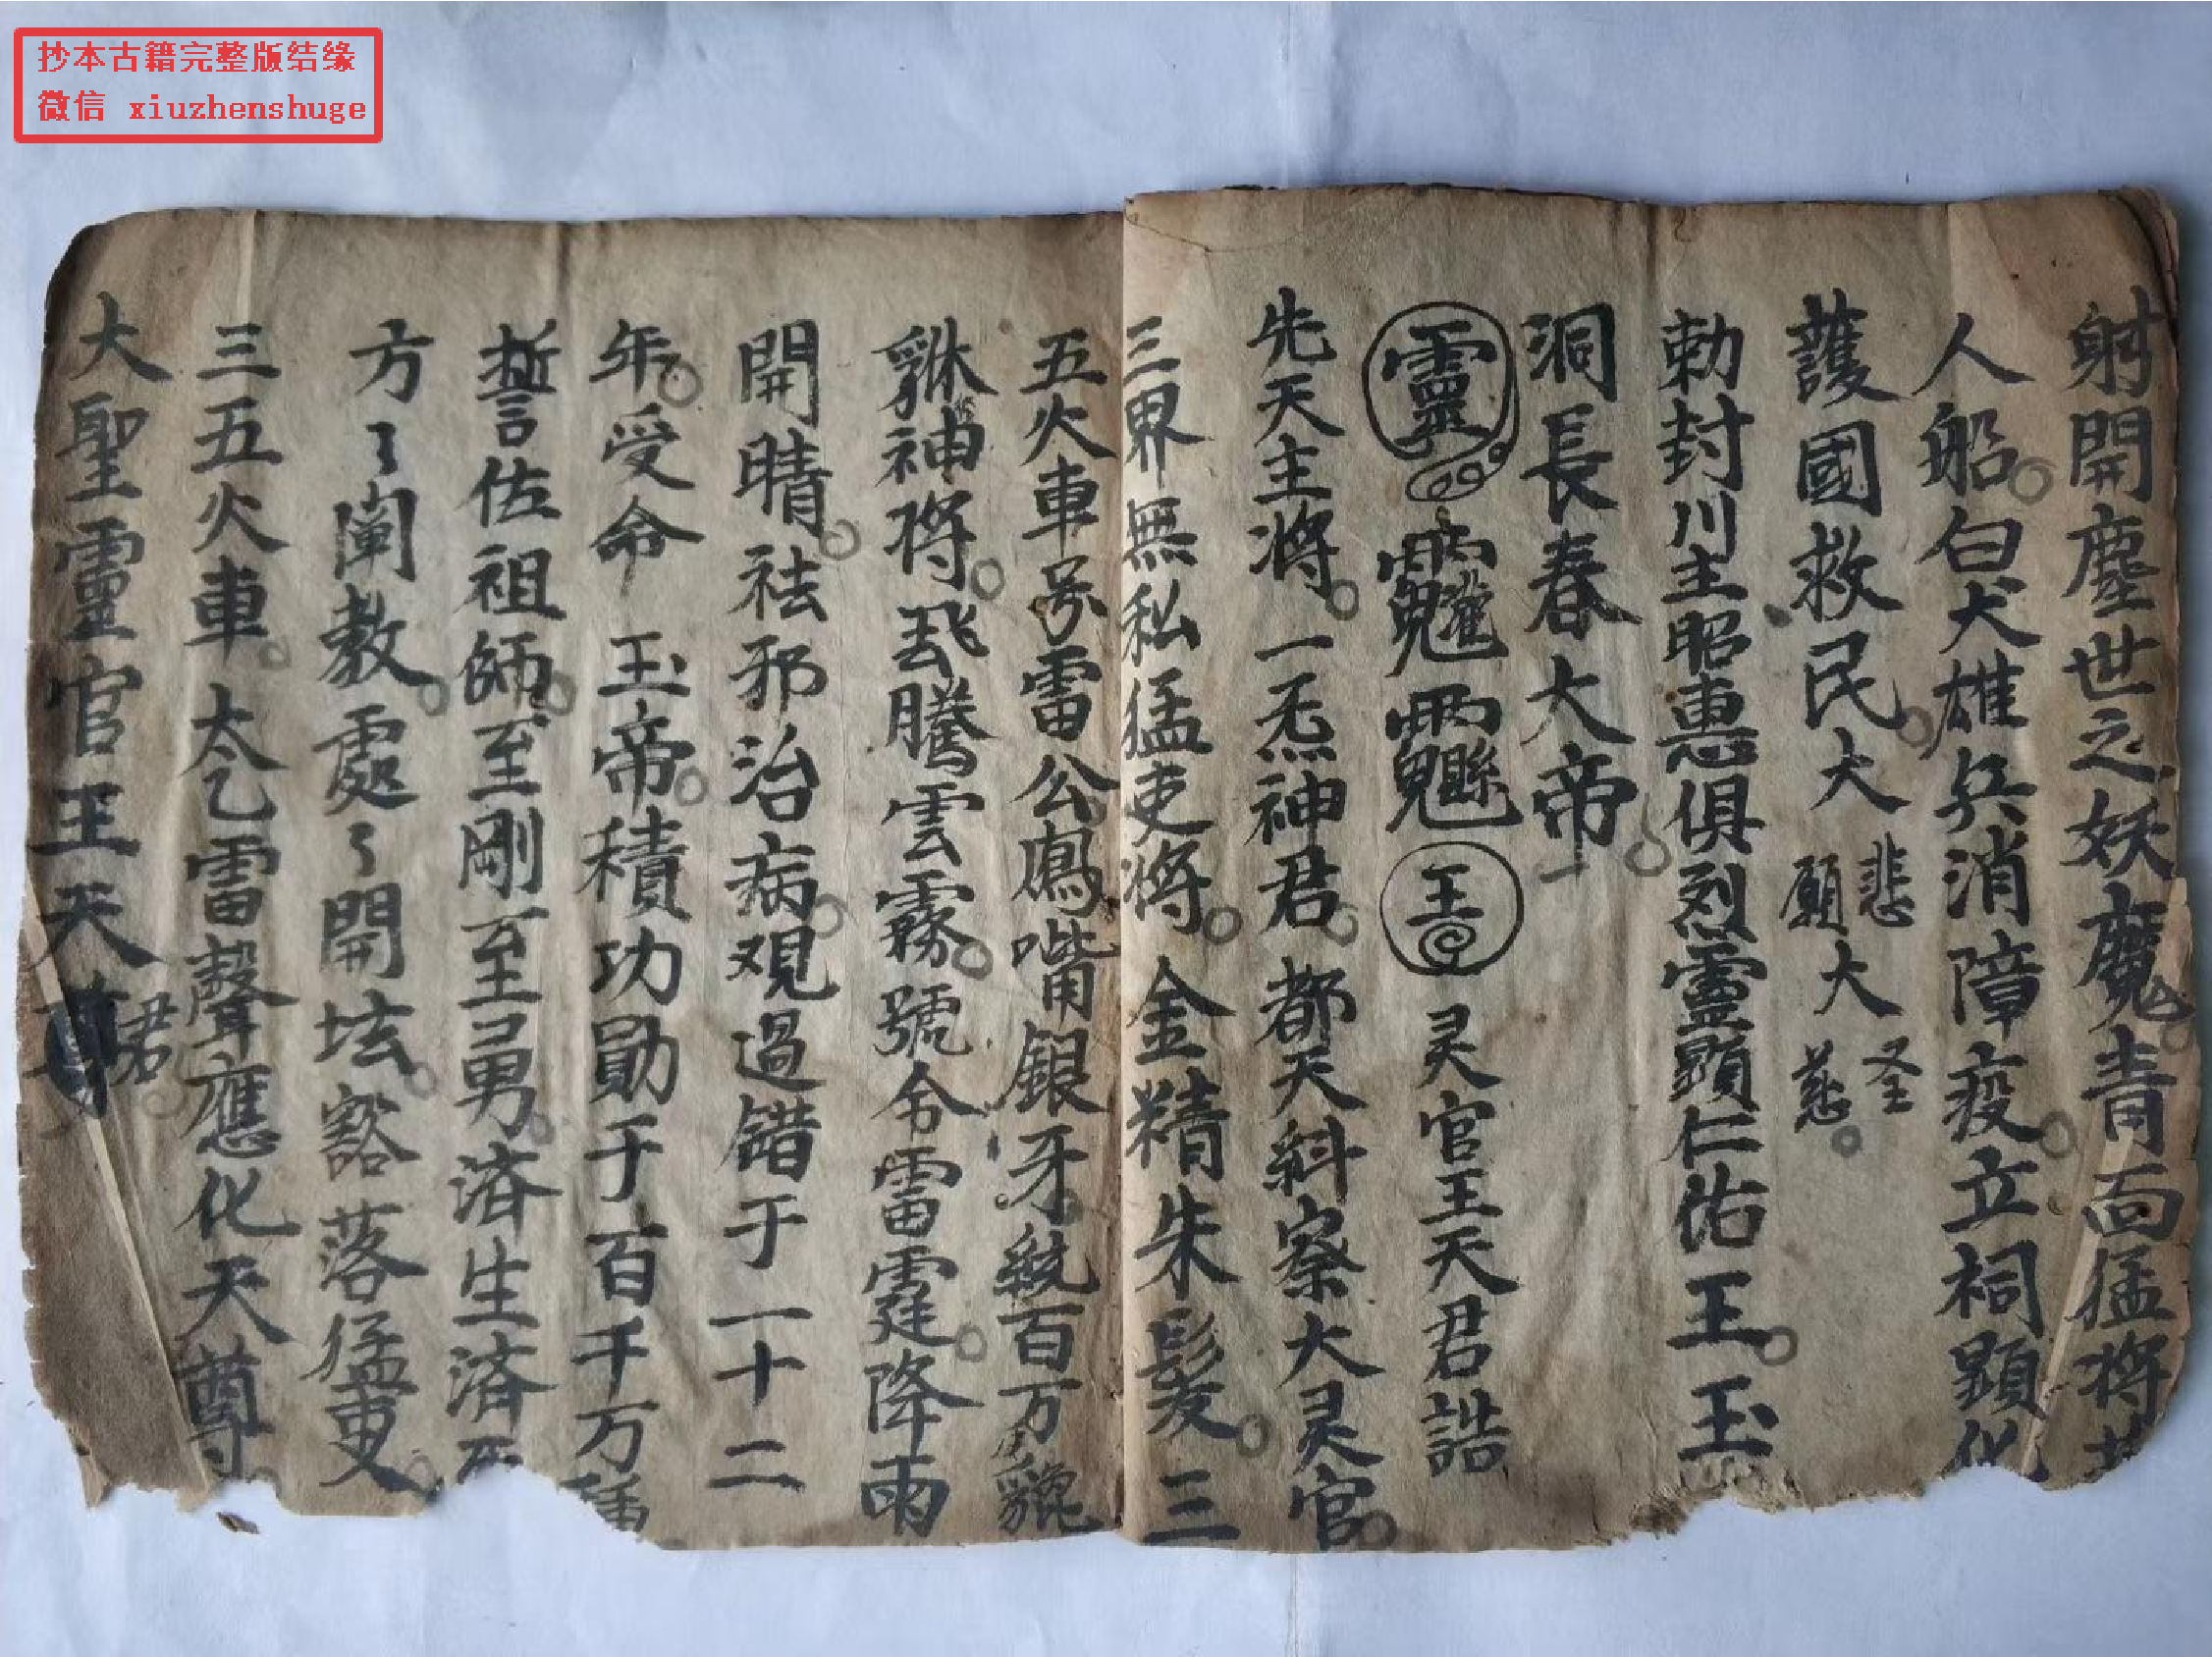 抄本古籍完整版结缘
微信 xiuzhenshuge
射開塵世之妖魔青面猛将
人船白犬雄兵消障疫立祠顕化
護國救民大悲願大圣慈
勅封川主昭惠俱烈靈顕仁佑王玉
洞長春大帝
靈 王 灵官王天君誥
先天主將一炁神君都天糾察大灵官
三界無私猛吏将金精朱髪三
五火車号雷公鳫嘴銀牙統百万貔
貅神将飛騰雲霧號令雷霆降雨
開晴祛邪治病观過錯于一十二
年受命玉帝積功勛于百千万種
誓佐祖師至剛至勇済生済死
方々闡教處々開坛豁落猛吏
三五火車太乙雷聲應化天尊
大聖靈官王天君